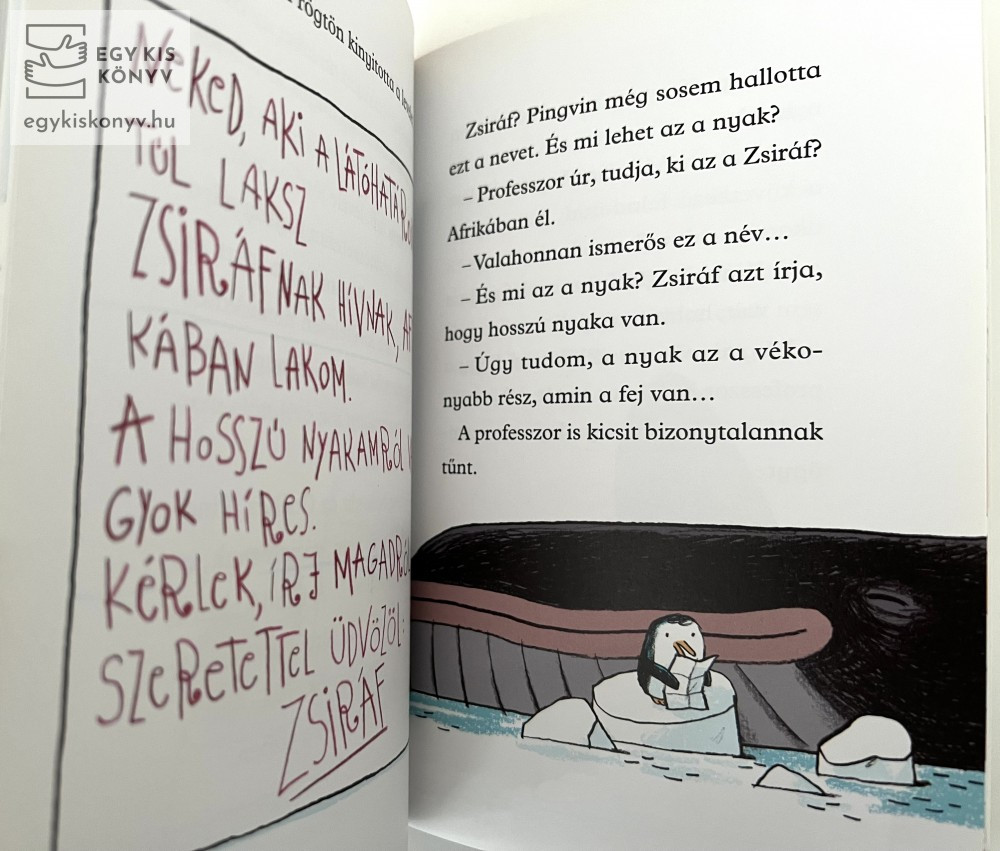 EGY KIS
KÖNYV
egykiskonyv.hu
rögtön kinyitotta a
NEKED, AKI A LÁTÓHATÁRO
TÚL LAKSZ
ZSIRÁFNAK HÍVNAK, AF
KÁBAN LAKOM.
A HOSSZÚ NYAKAMRÓL V
GYOK HÍRES.
KÉRLEK, ÍRJ MAGADRÓL
SZERETETTEL ÜDVÖZÖL:
ZSIRÁF
Zsiráf? Pingvin még sosem hallotta
ezt a nevet. És mi lehet az a nyak?
– Professzor úr, tudja, ki az a Zsiráf?
Afrikában él.
– Valahonnan ismerős ez a név…
– És mi az a nyak? Zsiráf azt írja,
hogy hosszú nyaka van.
– Úgy tudom, a nyak az a véko-
nyabb rész, amin a fej van…
A professzor is kicsit bizonytalannak
tűnt.